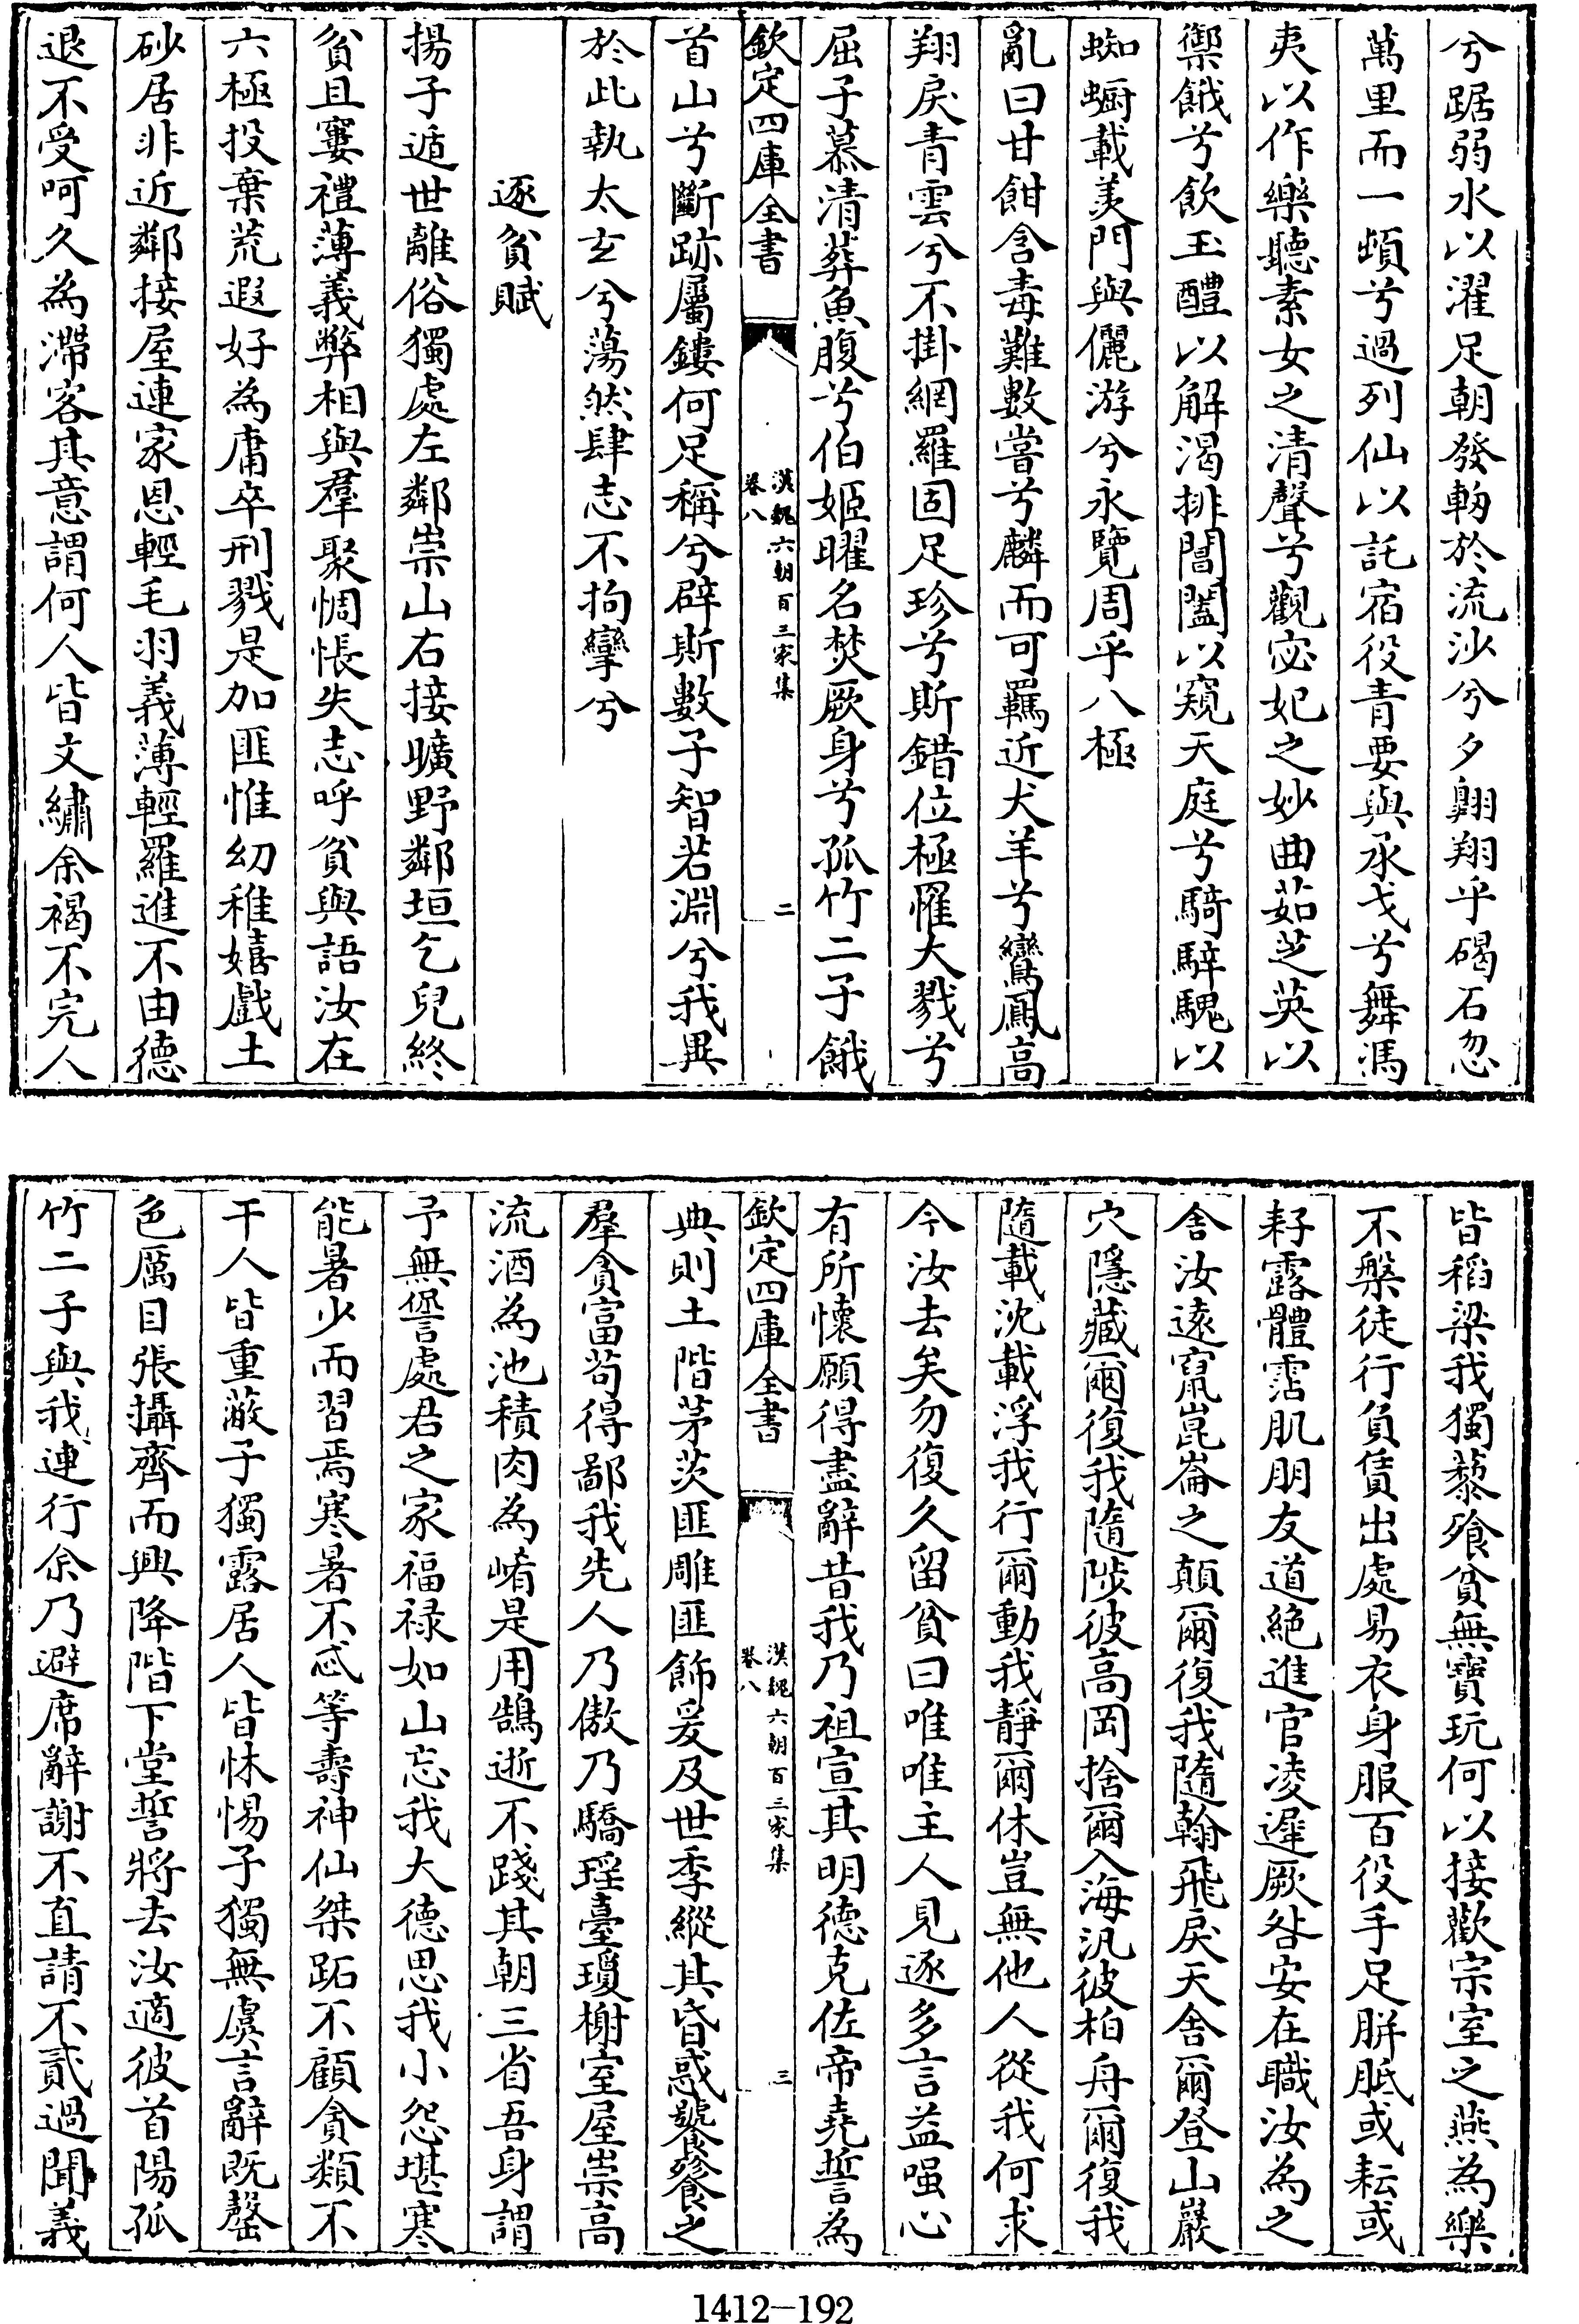 兮踞弱水以濯足朝發軔於流沙兮夕翺翔乎碣石忽
萬里而一頓兮過列仙以託宿役青要與承戈兮舞馮
夷以作樂聽素女之清聲兮觀宓妃之妙曲茹芝英以
禦餓兮飲玉醴以解渴排閶闔以窺天庭兮騎騂騩以
踟躕載羨門與儷游兮永覽周乎八極
亂曰甘餌含毒難數嘗兮麟而可羈近犬羊兮鸞鳳高
翔戾青雲兮不掛網羅固足珍兮斯錯位極罹大戮兮
屈子慕清葬魚腹兮伯姬曜名焚厥身兮孤竹二子餓
欽定四庫全書
漢魏六朝百三家集
卷八
二
首山兮斷跡屬鏤何足稱兮辟斯數子智若淵兮我異
於此執太玄兮蕩然肆志不拘攣兮
逐貧賦
揚子遁世離俗獨處左鄰崇山右接曠野鄰垣乞兒終
貧且窶禮薄義弊相與羣聚惆悵失志呼貧與語汝在
六極投棄荒遐好為庸卒刑戮是加匪惟幼稚嬉戲土
砂居非近鄰接屋連家恩輕毛羽義薄輕羅進不由德
退不受呵久為滯客其意謂何人皆文繡余褐不完人
皆稻梁我獨藜飱貧無寶玩何以接歡宗室之燕為樂
不槃徒行負賃出處易衣身服百役手足胼胝或耘或
耔露體霑肌朋友道絶進官凌遲厥咎安在職汝為之
舍汝遠竄崑崙之顛爾復我隨翰飛戾天舍爾登山巖
穴隱藏爾復我隨陟彼高岡捨爾入海汎彼柏舟爾復我
隨載沈載浮我行爾動我靜爾休豈無他人從我何求
今汝去矣勿復久留貧曰唯唯主人見逐多言益嗤心
有所懷願得盡辭昔我乃祖宣其明德克佐帝堯誓為
欽定四庫全書
漢魏六朝百三家集
卷八
三
典則土階茅茨匪雕匪飾爰及世季縱其昏惑饕餮之
羣貪富苟得鄙我先人乃傲乃驕瑤臺瓊榭室屋崇高
流酒為池積肉為崤是用鵠逝不踐其朝三省吾身謂
予無諐處君之家福禄如山忘我大德思我小怨堪寒
能暑少而習焉寒暑不忒等壽神仙桀跖不顧貪類不
干人皆重蔽子獨露居人皆怵惕子獨無虞言辭既罄
色厲目張攝齊而興降階下堂誓將去汝適彼首陽孤
竹二子與我連行余乃避席辭謝不直請不貳過聞義
1412—192